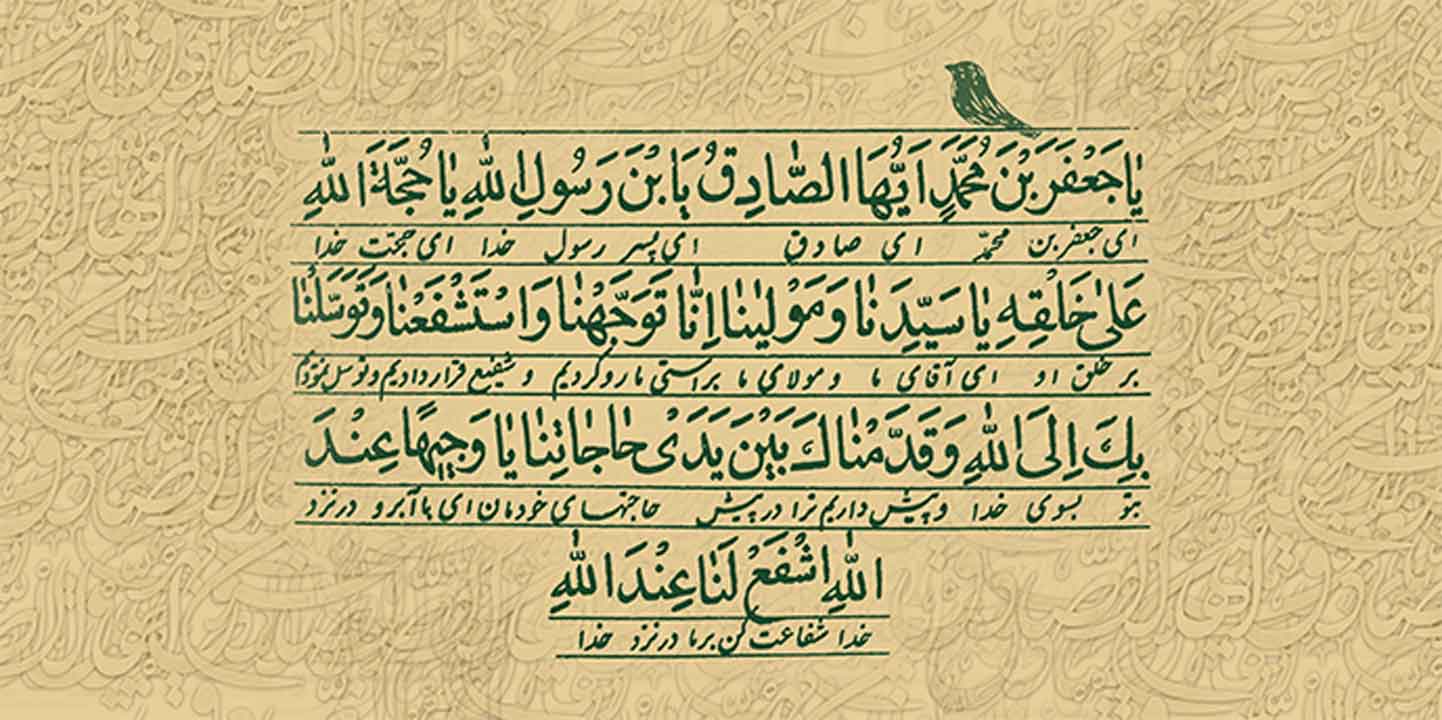 یٰا جَعْفَرَ بْنَ مُحَمَّدٍ اَیُّهَا الصّٰادِقُ یَا بْنَ رَسُولِ اللّٰهِ یٰا حُجَّةَ اللّٰهِ
ای جعفر بن محمّد ای صادق ای پسر رسول خدا ای حجت خدا
عَلیٰ خَلْقِهِ یٰا سَیِّدَنٰا وَ مَوْلیٰنٰا اِنّٰا تَوَجَّهْنٰا وَ اسْتَشْفَعْنٰا وَ تَوَسَّلْنٰا
بر خلق او ای آقای ما و مولای ما براستی ما رو کردیم و شفیع قرار دادیم و توسل نمودیم
بِكَ اِلَی اللّٰهِ وَ قَدَّمْنٰاكَ بَیْنَ یَدَیْ حٰاجٰاتِنٰا یٰا وَجیهًا عِنْدَ
بتو بسوی خدا و پیش داریم ترا در پیش حاجتهای خودمان ای با آبرو در نزد
اللّٰهِ اشْفَعْ لَنٰا عِنْدَ اللّٰهِ
خدا شفاعت کن بر ما در نزد خدا